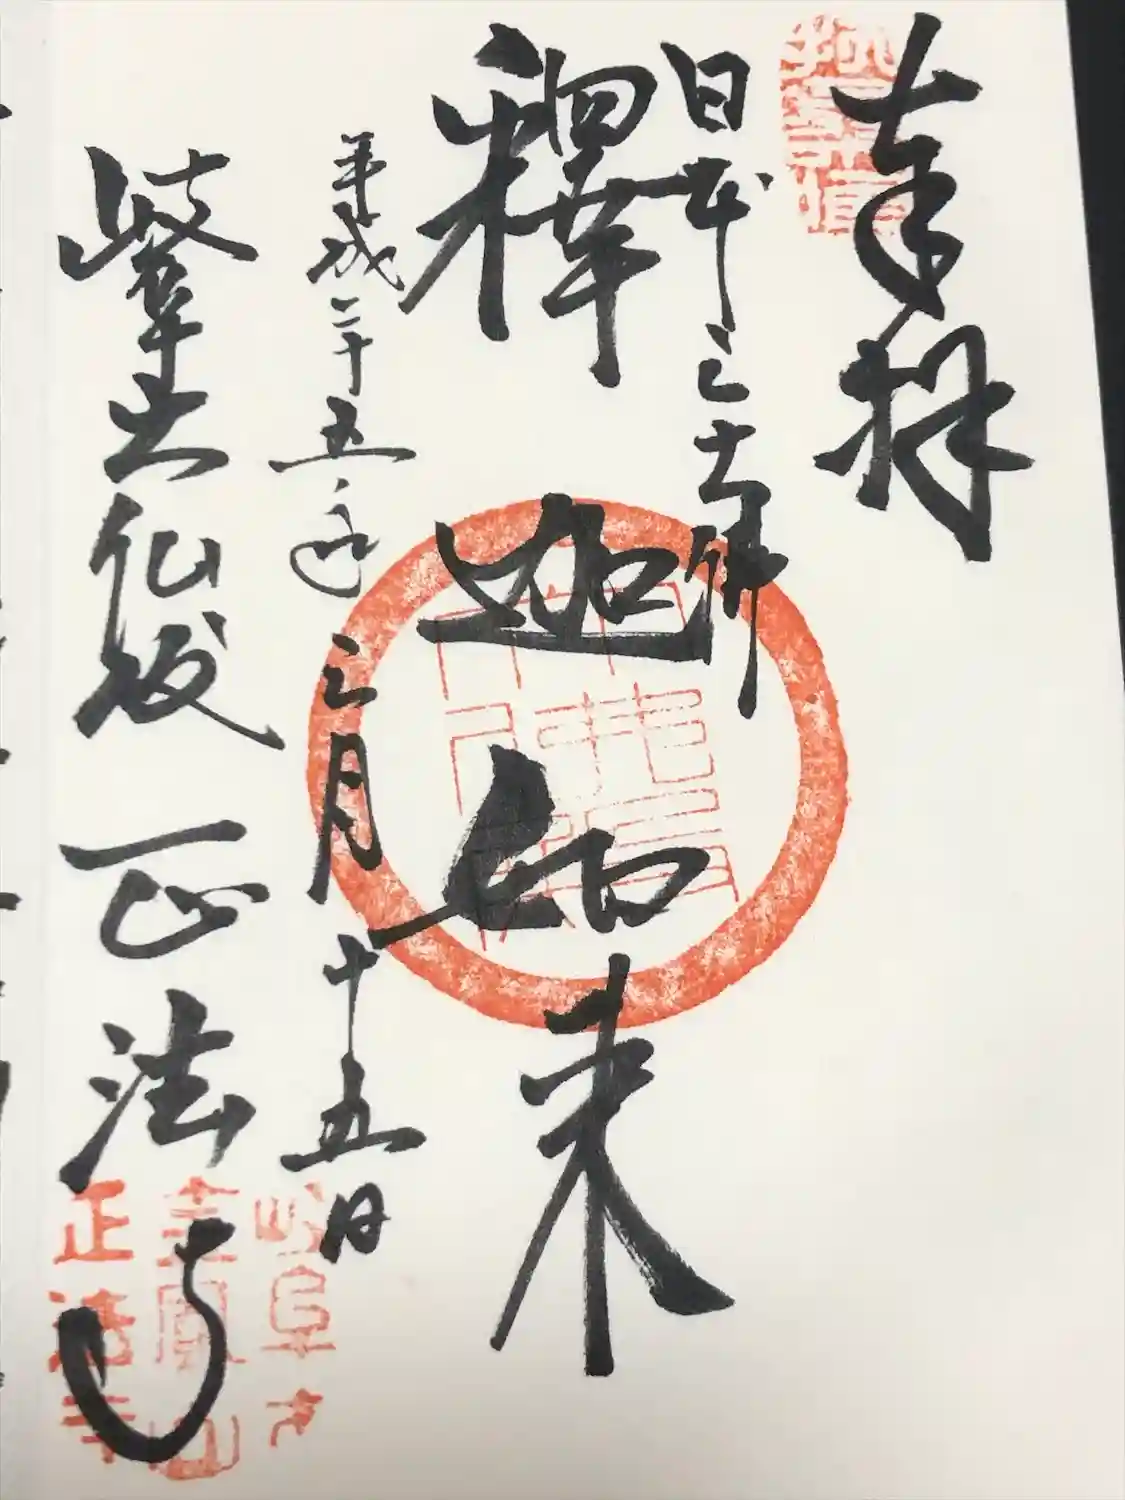 奉拝
日本三大佛
釋迦如来
平成二十五年三月十五日
岐阜大仏殿 正法寺
岐阜大
金鳳山
正法寺